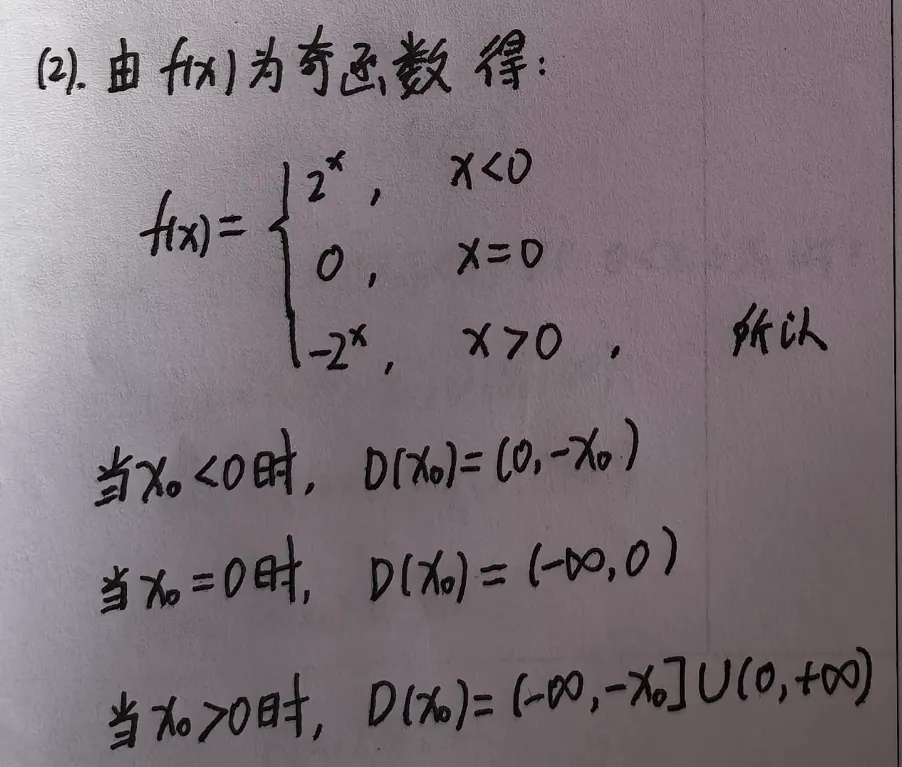 (2). 由 f(x) 为奇函数 得:
f(x)= { 2^x , x<0
0 , x=0
-2^x , x>0 , 所以
当 x₀<0时, D(x₀)=(0,-x₀)
当 x₀=0时, D(x₀)=(-∞,0)
当 x₀>0时, D(x₀)=(-∞,-x₀]∪(0,+∞)